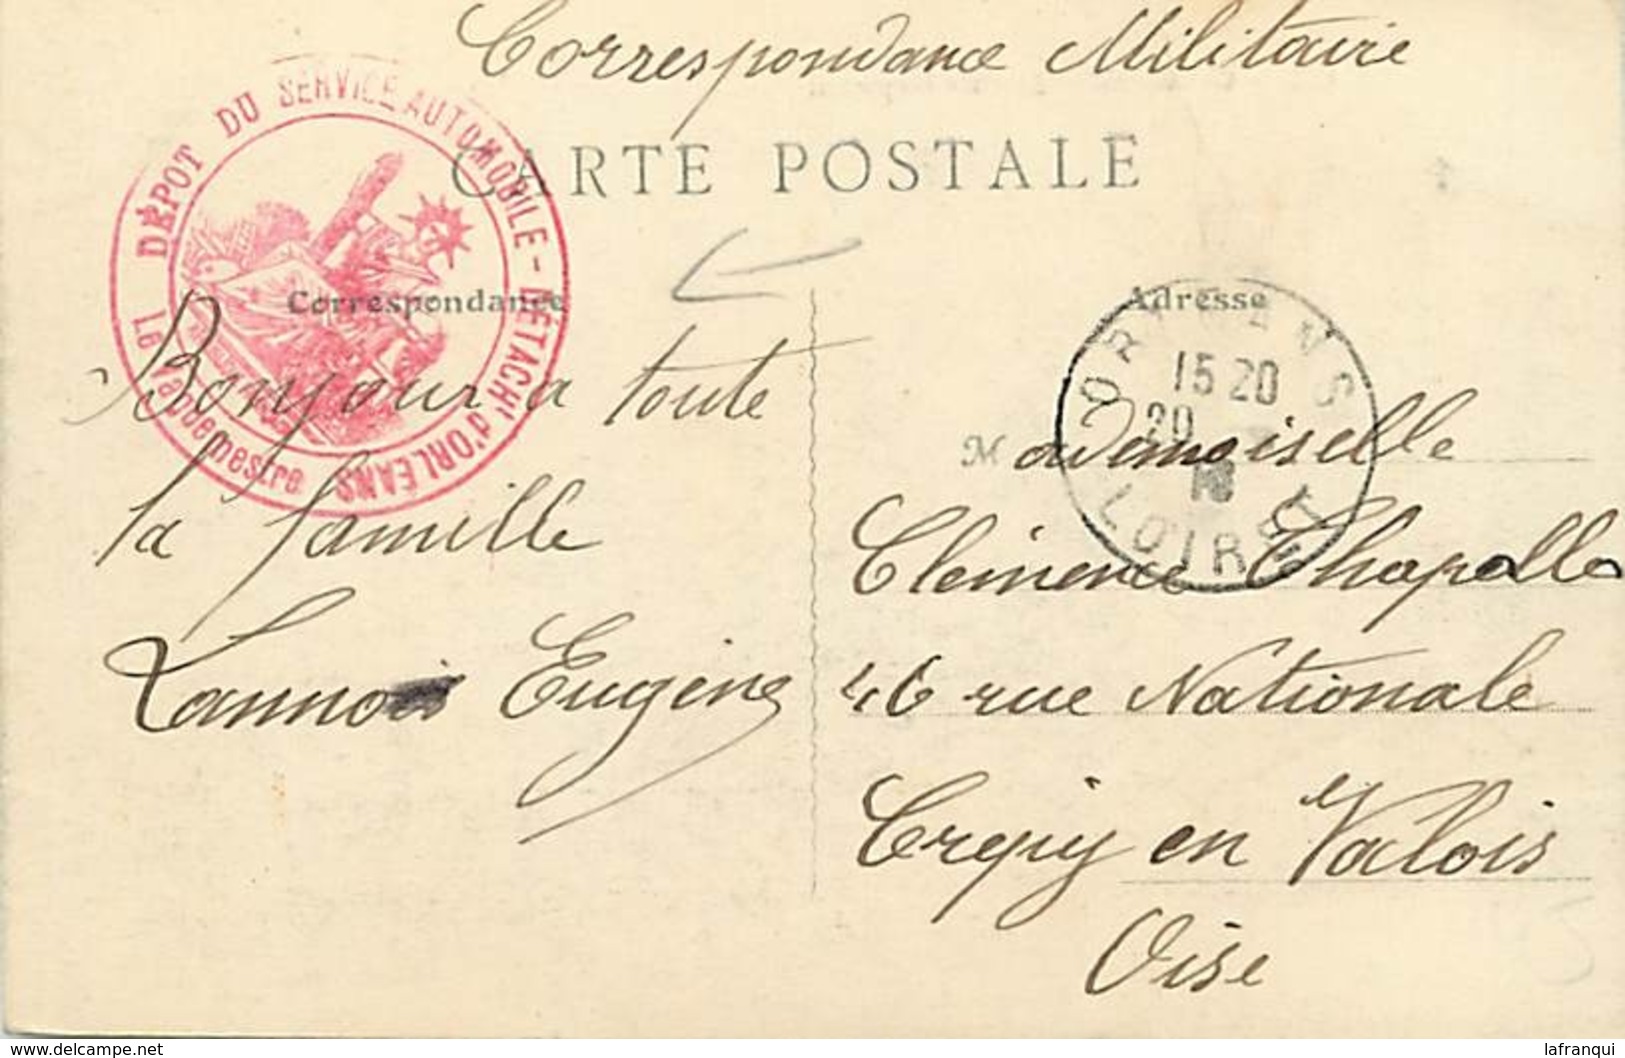 Correspondance Militaire
CARTE POSTALE
DÉPOT DU SERVICE AUTOMOBILE - DÉTACHt d'ORLÉANS
Le Vaguemestre
Correspondance
Bonjour a toute
la famille
Lannois Eugène
Adresse
15 20
20
LOIRET
Mademoiselle
Clémence Chapelle
46 rue Nationale
Crepy en Valois
Oise
www.delcampe.net
lafranqui